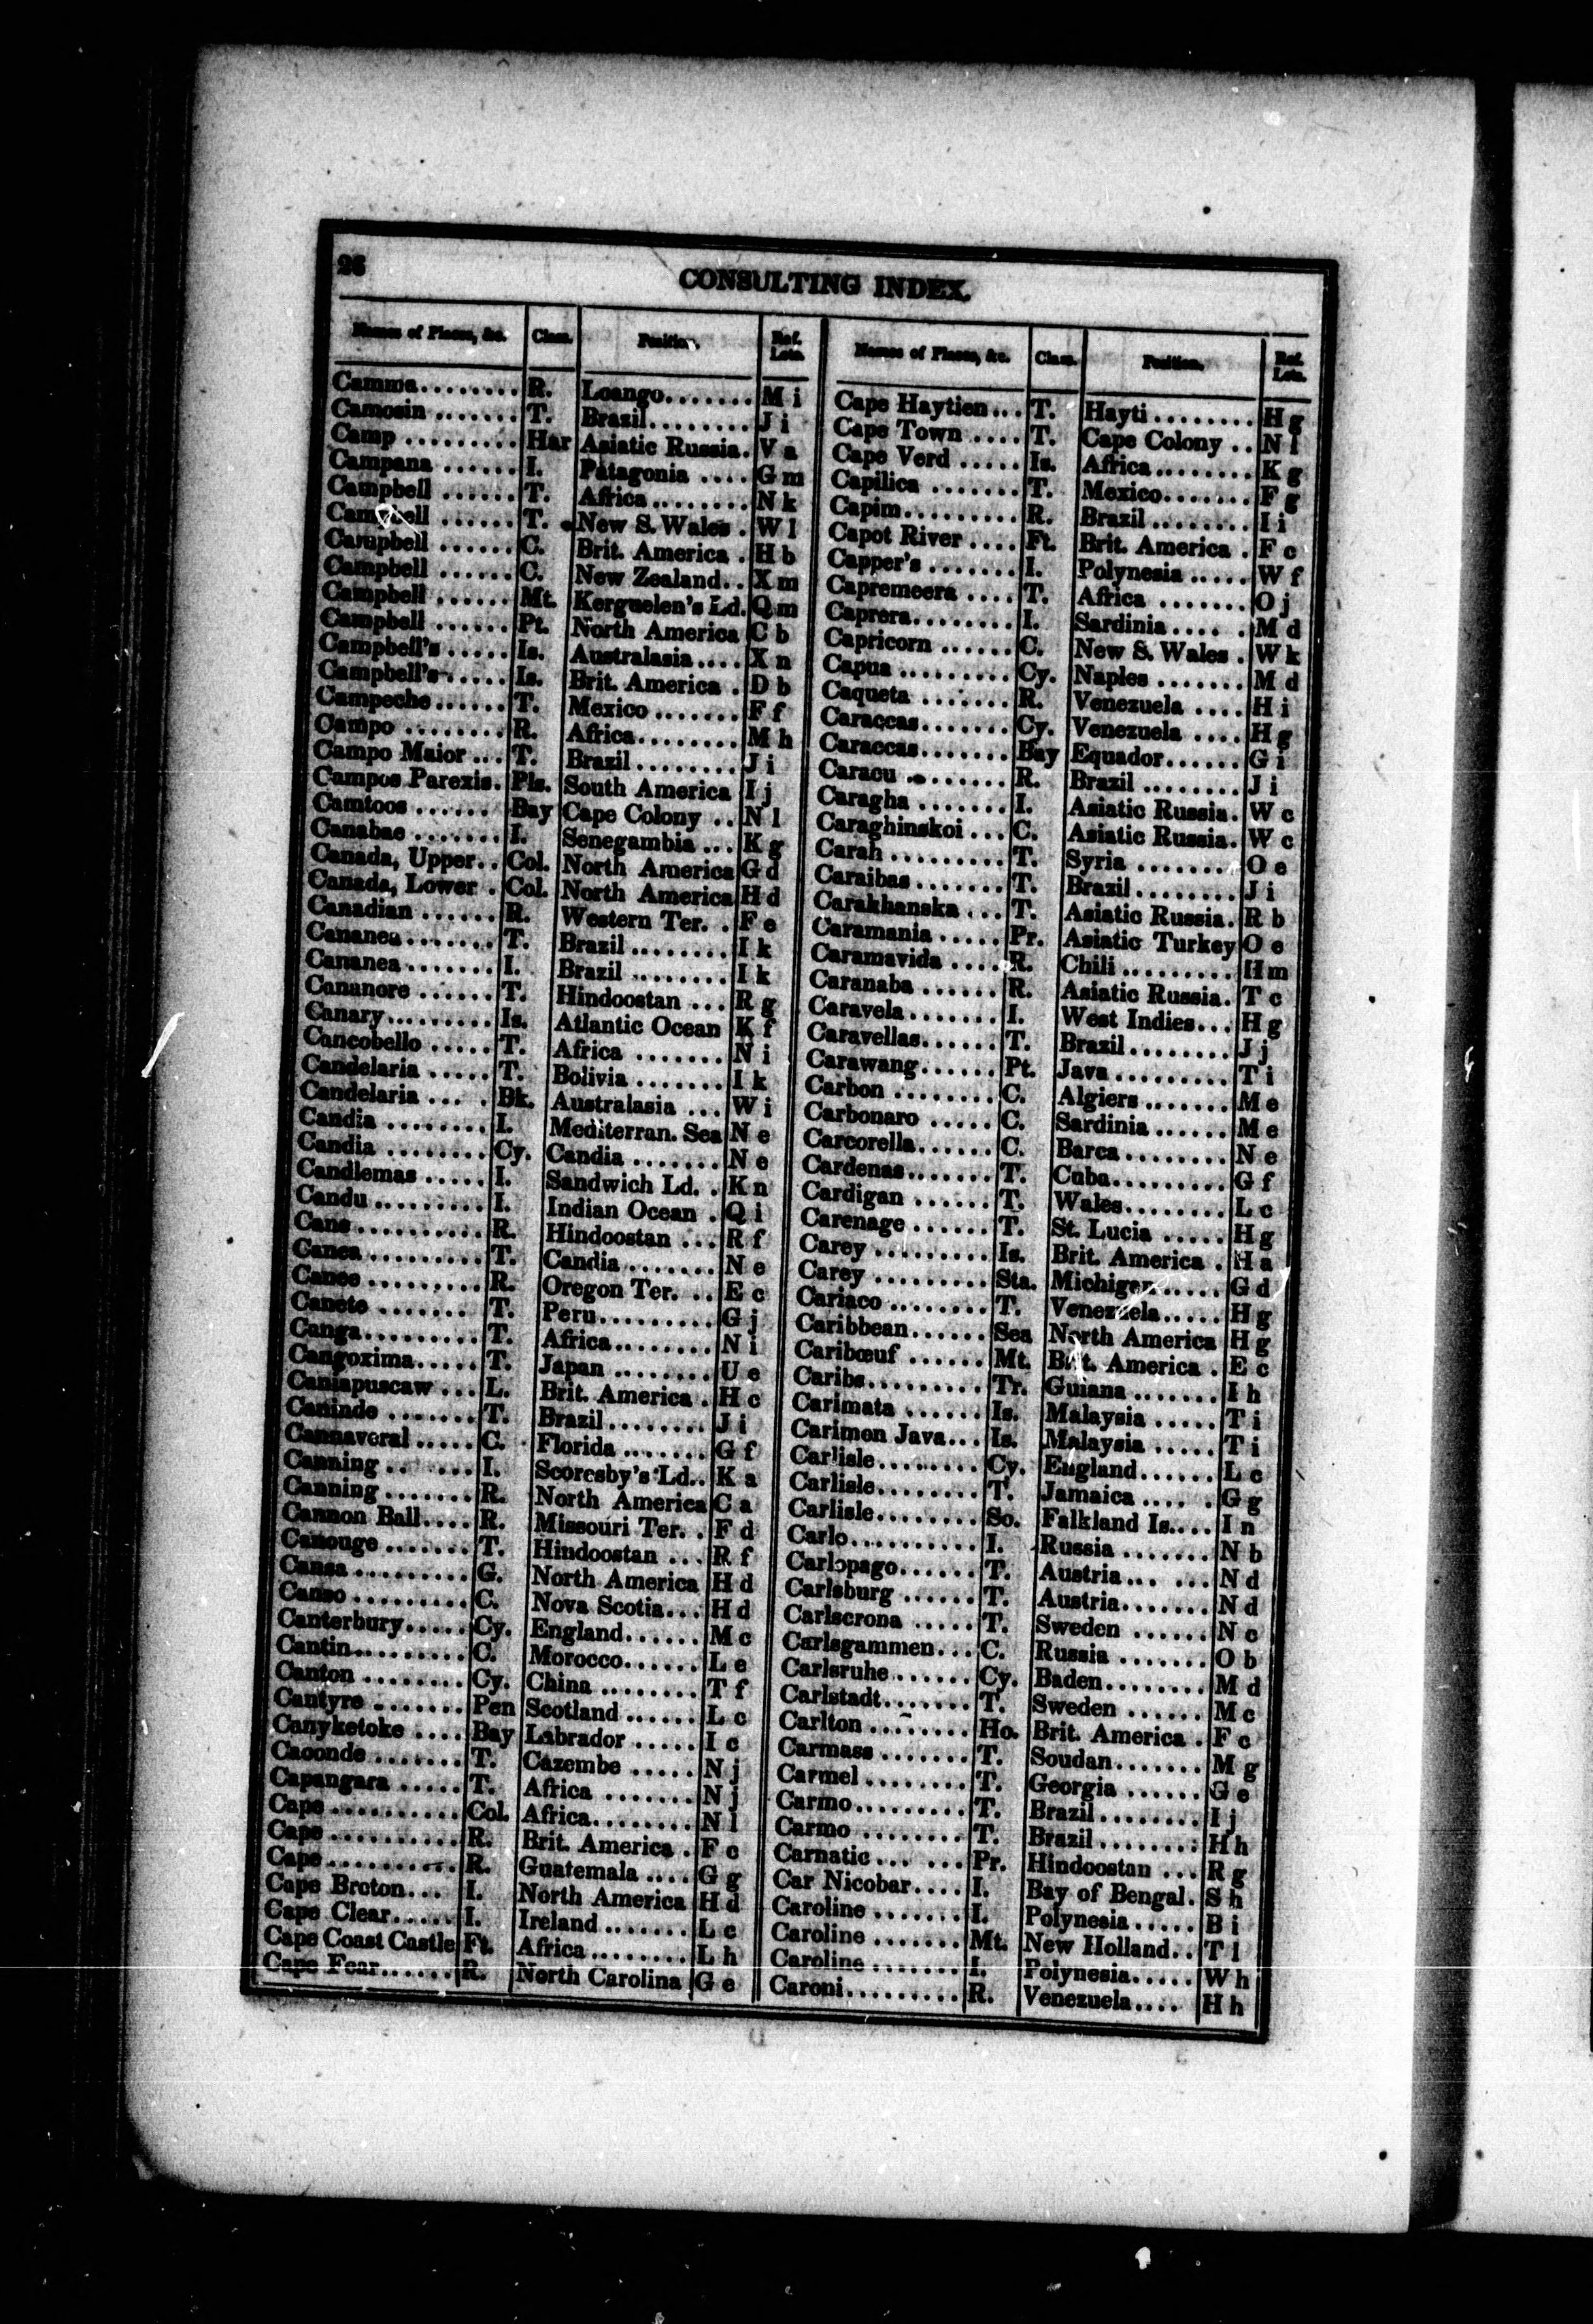 26
CONSULTING INDEX.
Names of Places, &c. Class. Position. Ref. Lets.
Camma........ R. Loango....... M i
Camosin ....... T. Brazil........ J i
Camp ......... Har Asiatic Russia. V a
Campana ...... I. Patagonia .... G m
Campbell ...... T. Africa........ N k
Campbell ...... T. New S. Wales . W l
Campbell ...... C. Brit. America . H b
Campbell ...... C. New Zealand.. X m
Campbell ...... Mt. Kerguelen's Ld. Q m
Campbell ...... Pt. North America C b
Campbell's..... Is. Australasia.... X n
Campbell's..... Is. Brit. America . D b
Campeche...... T. Mexico ....... F f
Campo ........ R. Africa........ M h
Campo Maior... T. Brazil........ J i
Campos Parexis. Pls. South America I j
Camtoos ...... Bay Cape Colony .. N l
Canabac ....... I. Senegambia ... K g
Canada, Upper.. Col. North America G d
Canada, Lower . Col. North America H d
Canadian ...... R. Western Ter. . F e
Cananea....... T. Brazil ........ I k
Cananea....... I. Brazil ........ I k
Cananore ...... T. Hindoostan ... R g
Canary......... Is. Atlantic Ocean K f
Cancobello ..... T. Africa ....... N i
Candelaria ..... T. Bolivia ....... I k
Candelaria .... . Bk. Australasia ... W i
Candia ........ I. Mediterran. Sea N e
Candia ........ Cy. Candia ....... N e
Candlemas ..... I. Sandwich Ld. . K n
Candu......... I. Indian Ocean . Q i
Cane.......... R. Hindoostan ... R f
Canea ......... T. Candia....... N e
Canee ......... R. Oregon Ter. .. E c
Canete ....... T. Peru......... G j
Canga......... T. Africa........ N i
Cangoxima..... T. Japan ........ U e
Caniapuscaw ... L. Brit. America . H c
Caninde ....... T. Brazil........ J i
Cannaveral ..... C. Florida ....... G f
Canning ....... I. Scoresby's Ld.. K a
Canning ....... R. North America C a
Cannon Ball.... R. Missouri Ter. . F d
Canouge ....... T. Hindoostan ... R f
Cansa ......... G. North America H d
Canso ......... C. Nova Scotia... H d
Canterbury..... Cy. England...... M c
Cantin......... C. Morocco...... L e
Canton ........ Cy. China ........ T f
Cantyre ....... Pen Scotland ...... L c
Canyketoke .... Bay Labrador ..... I c
Caconde ....... T. Cazembe ..... N j
Capangara ..... T. Africa ....... N j
Cape .......... Col. Africa........ N l
Cape .......... R. Brit. America . F c
Cape .......... R. Guatemala .... G g
Cape Breton... I. North America H d
Cape Clear..... I. Ireland ....... L c
Cape Coast Castle Ft. Africa........ L h
Cape Fear...... R. North Carolina G e
Names of Places, &c. Class. Position. Ref. Lets.
Cape Haytien... T. Hayti ........ H g
Cape Town .... T. Cape Colony .. N l
Cape Verd ..... Is. Africa........ K g
Capilica ....... T. Mexico....... F g
Capim......... R. Brazil ........ I i
Capot River .... Ft. Brit. America . F c
Capper's ....... I. Polynesia ..... W f
Capremeera .... T. Africa ....... O j
Caprera........ I. Sardinia..... . M d
Capricorn ...... C. New S. Wales . W k
Capua ......... Cy. Naples ....... M d
Caqueta ....... R. Venezuela .... H i
Caraccas....... Cy. Venezuela .... H g
Caraccas....... Bay Equador...... G i
Caracu ........ R. Brazil ........ J i
Caragha ....... I. Asiatic Russia. W c
Caraghinskoi ... C. Asiatic Russia. W c
Carah ......... T. Syria ........ O e
Caraibas....... T. Brazil........ J i
Carakhanska ... T. Asiatic Russia. R b
Caramania ..... Pr. Asiatic Turkey O e
Caramavida .... R. Chili ......... H m
Caranaba ...... R. Asiatic Russia. T c
Caravela....... I. West Indies... H g
Caravellas...... T. Brazil........ J j
Carawang...... Pt. Java.......... T i
Carbon ........ C. Algiers ....... M e
Carbonaro ..... C. Sardinia ...... M e
Carcorella...... C. Barca......... N e
Cardenas....... T. Cuba.......... G f
Cardigan ...... T. Wales........ L c
Carenage ...... T. St. Lucia ..... H g
Carey ......... Is. Brit. America . H a
Carey ......... Sta. Michigan..... G d
Cariaco ........ T. Venezuela..... H g
Caribbean...... Sea North America H g
Caribœuf ...... Mt. Brit. America . E c
Caribs......... Tr. Guiana ....... I h
Carimata ...... Is. Malaysia ..... T i
Carimon Java... Is. Malaysia ..... T i
Carlisle........ Cy. England...... L c
Carlisle........ T. Jamaica .... . G g
Carlisle........ So. Falkland Is.... I n
Carlo.......... I. Russia ....... N b
Carlopago...... T. Austria... ... N d
Carlsburg ...... T. Austria....... N d
Carlscrona ..... T. Sweden ...... N c
Carlsgammen... C. Russia ....... O b
Carlsruhe...... Cy. Baden........ M d
Carlstadt....... T. Sweden ...... M c
Carlton ........ Ho. Brit. America . F c
Carmass ....... T. Soudan....... M g
Carmel ........ T. Georgia ...... G e
Carmo......... T. Brazil........ I j
Carmo ........ T. Brazil........ H h
Carnatic... ... Pr. Hindoostan ... R g
Car Nicobar.... I. Bay of Bengal. S h
Caroline ....... I. Polynesia..... B i
Caroline ....... Mt. New Holland.. T l
Caroline ....... I. Polynesia..... W h
Caroni......... R. Venezuela.... H h